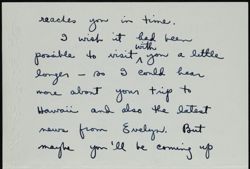 reaches you in time.
I wish it had been
possible to visit with you a little
longer – so I could hear
more about your trip to
Hawaii and also the latest
news from Evelyn. But
maybe you'll be coming up